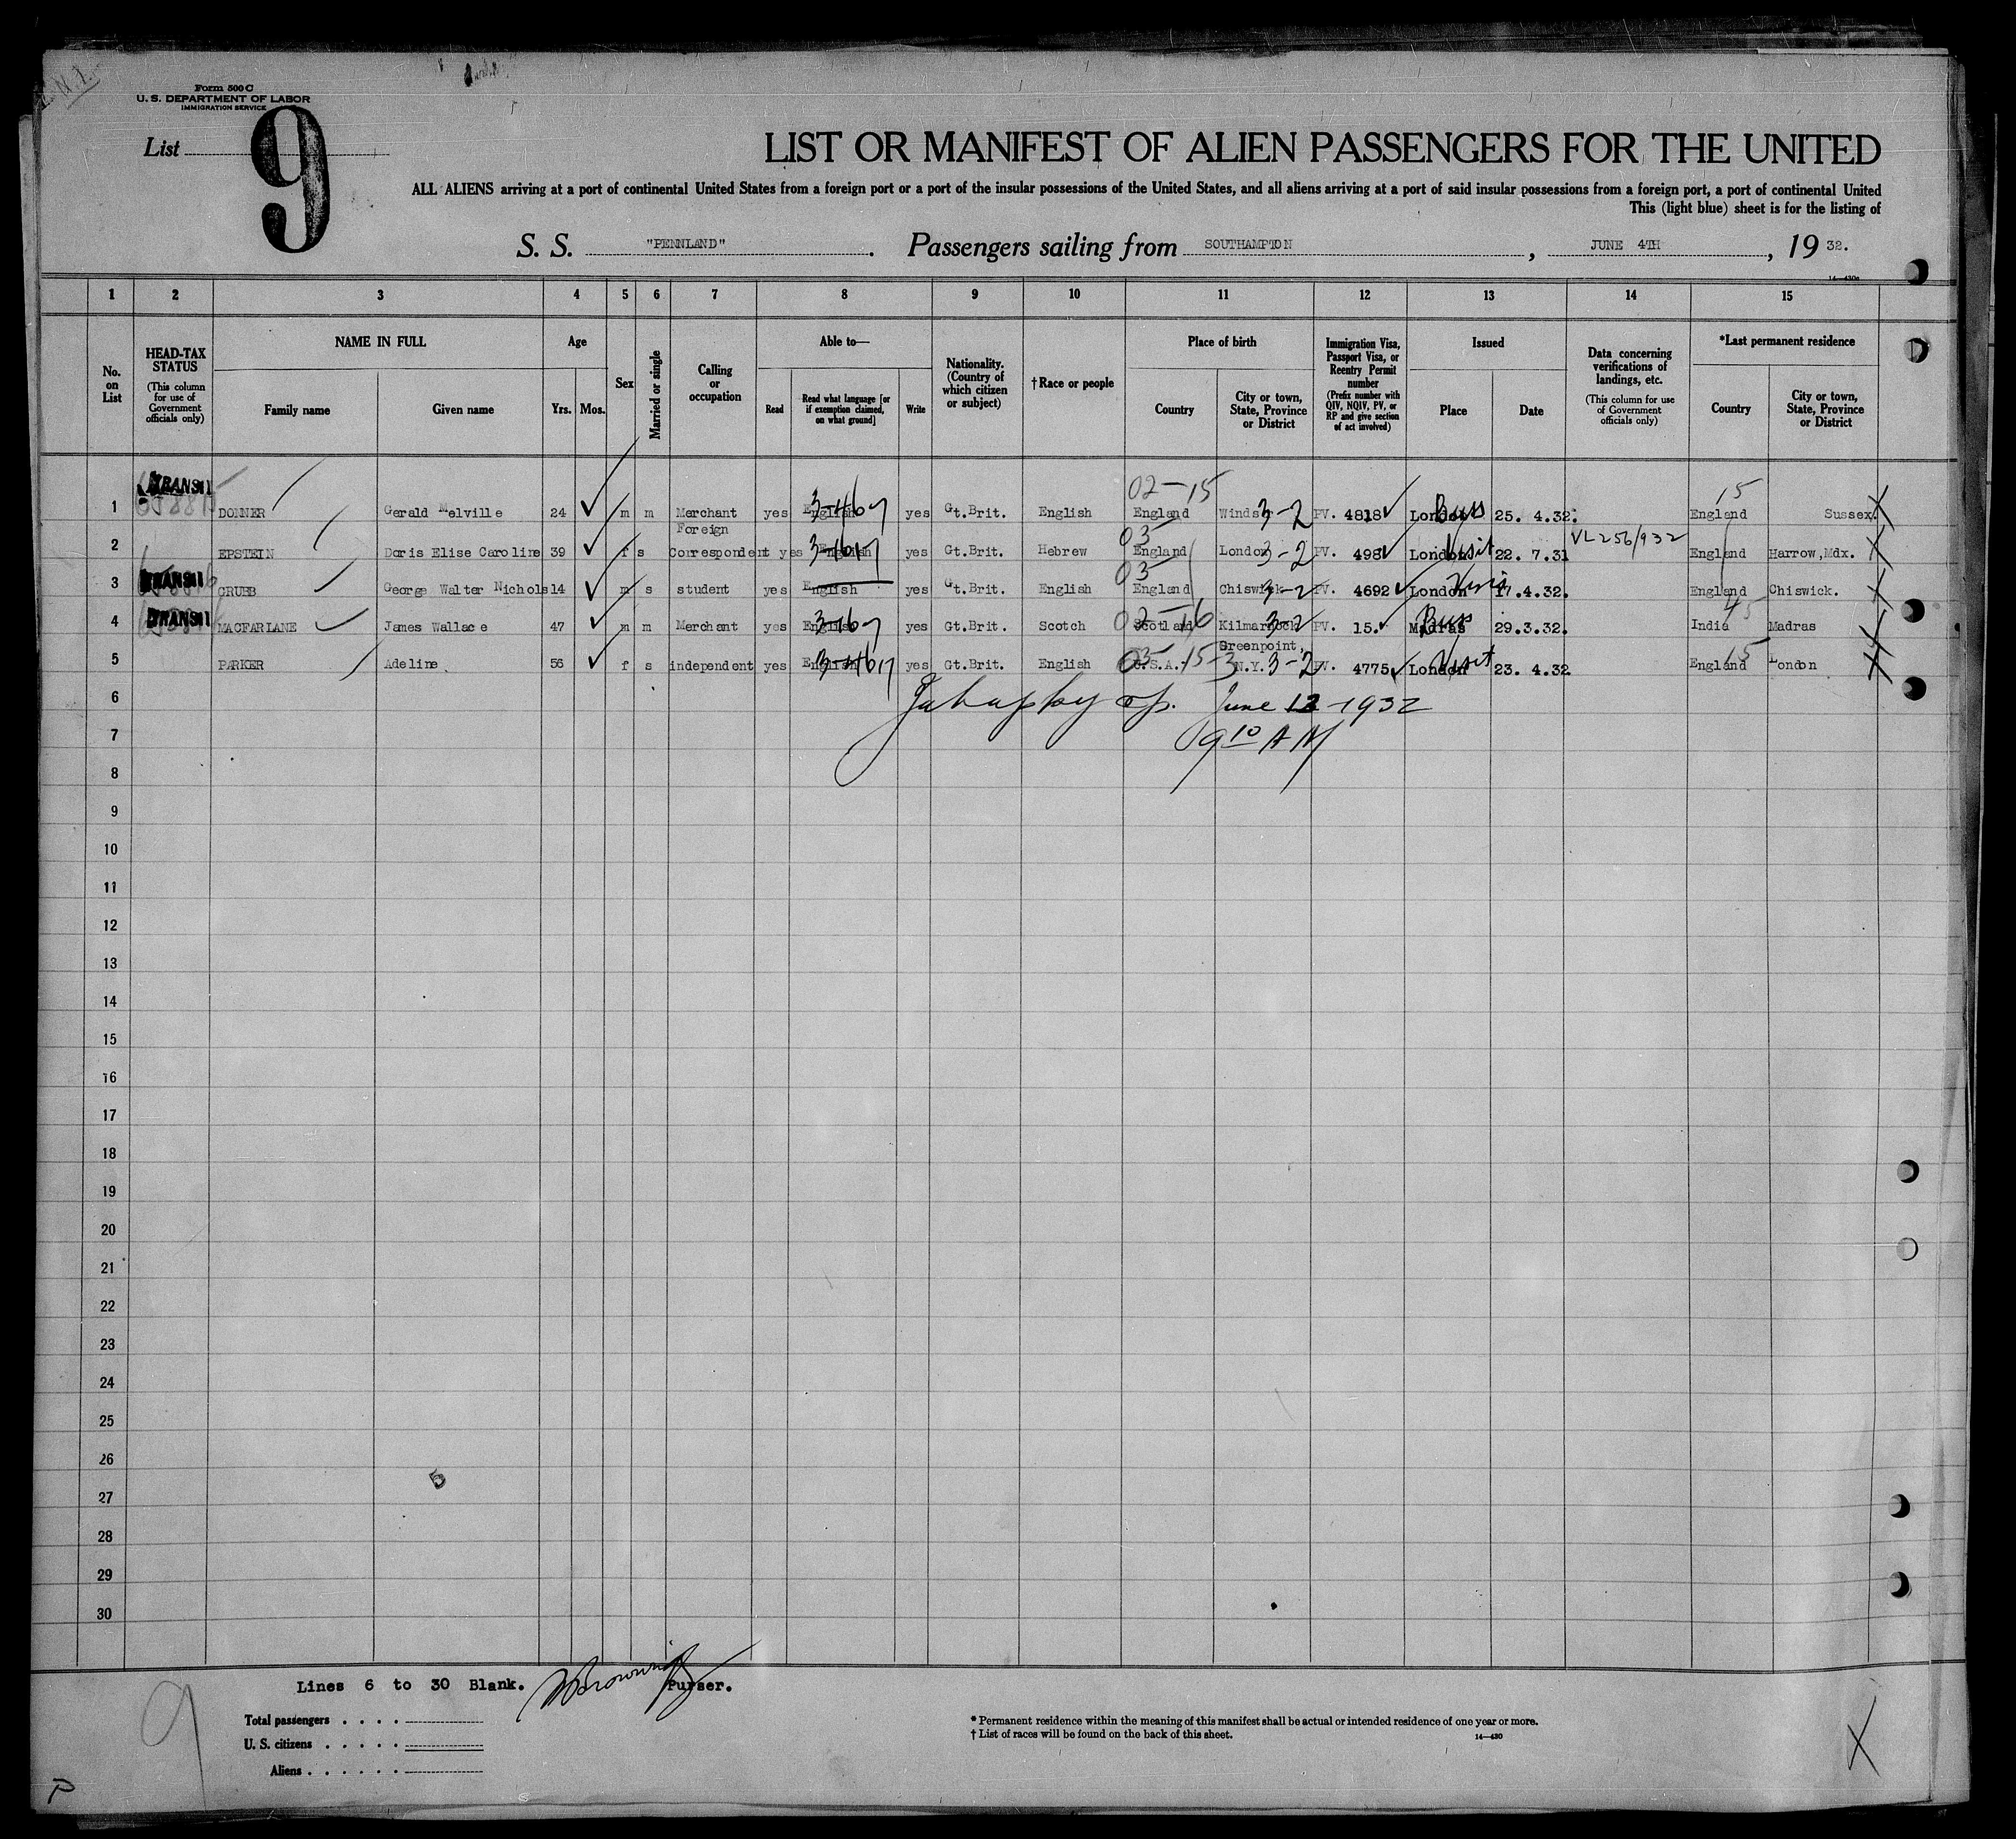 Form 500 C
U. S. DEPARTMENT OF LABOR
IMMIGRATION SERVICE
List 9
LIST OR MANIFEST OF ALIEN PASSENGERS FOR THE UNITED
ALL ALIENS arriving at a port of continental United States from a foreign port or a port of the insular possessions of the United States, and all aliens arriving at a port of said insular possessions from a foreign port, a port of continental United
This (light blue) sheet is for the listing of
S. S. "PENNLAND". Passengers sailing from SOUTHAMPTON, JUNE 4TH, 19 32.
14—430a
1 2 3 4 5 6 7 8 9 10 11 12 13 14 15
No. on List
HEAD-TAX STATUS (This column for use of Government officials only)
NAME IN FULL
Family name Given name
Age
Yrs. Mos.
Sex
Married or single
Calling or occupation
Able to—
Read
Read what language [or if exemption claimed, on what ground]
Write
Nationality. (Country of which citizen or subject)
† Race or people
Place of birth
Country
City or town, State, Province or District
Immigration Visa, Passport Visa, or Reentry Permit number (Prefix number with QIV, NQIV, PV, or RP and give section of act involved)
Issued
Place Date
Data concerning verifications of landings, etc. (This column for use of Government officials only)
*Last permanent residence
Country
City or town, State, Province or District
TRANSIT 02-15 15
1 DONNER Gerald Melville 24 m m Merchant yes English yes Gt.Brit. English England Windsor 3-2 PV. 4818 London Bus 25. 4.32. England Sussex.
Foreign 03
2 EPSTEIN Doris Elise Caroline 39 f s Correspondent yes English yes Gt.Brit. Hebrew England London 3-2 PV. 498 London Visit 22. 7.31 VL256/932 England Harrow,Mdx.
TRANSIT 03
3 CRUBB George Walter Nichols 14 m s student yes English yes Gt.Brit. English England Chiswick 3-2 PV. 4692 London 17.4.32. England Chiswick.
TRANSIT 02-16 45
4 MACFARLANE James Wallace 47 m m Merchant yes English yes Gt.Brit. Scotch Scotland Kilmarnock 3-2 PV. 15. Madras Bus 29.3.32. India Madras
Greenpoint, 15
5 PARKER Adeline 56 f s independent yes English yes Gt.Brit. English U.S.A. N.Y. 3-2 PV. 4775 London Visit 23. 4.32 England London
6 June 12-1932
7 9 10 AM
8
9
10
11
12
13
14
15
16
17
18
19
20
21
22
23
24
25
26
5
27
28
29
30
Lines 6 to 30 Blank. Purser.
9
Total passengers
U. S. citizens
Aliens
* Permanent residence within the meaning of this manifest shall be actual or intended residence of one year or more.
† List of races will be found on the back of this sheet.
14—430
X
P